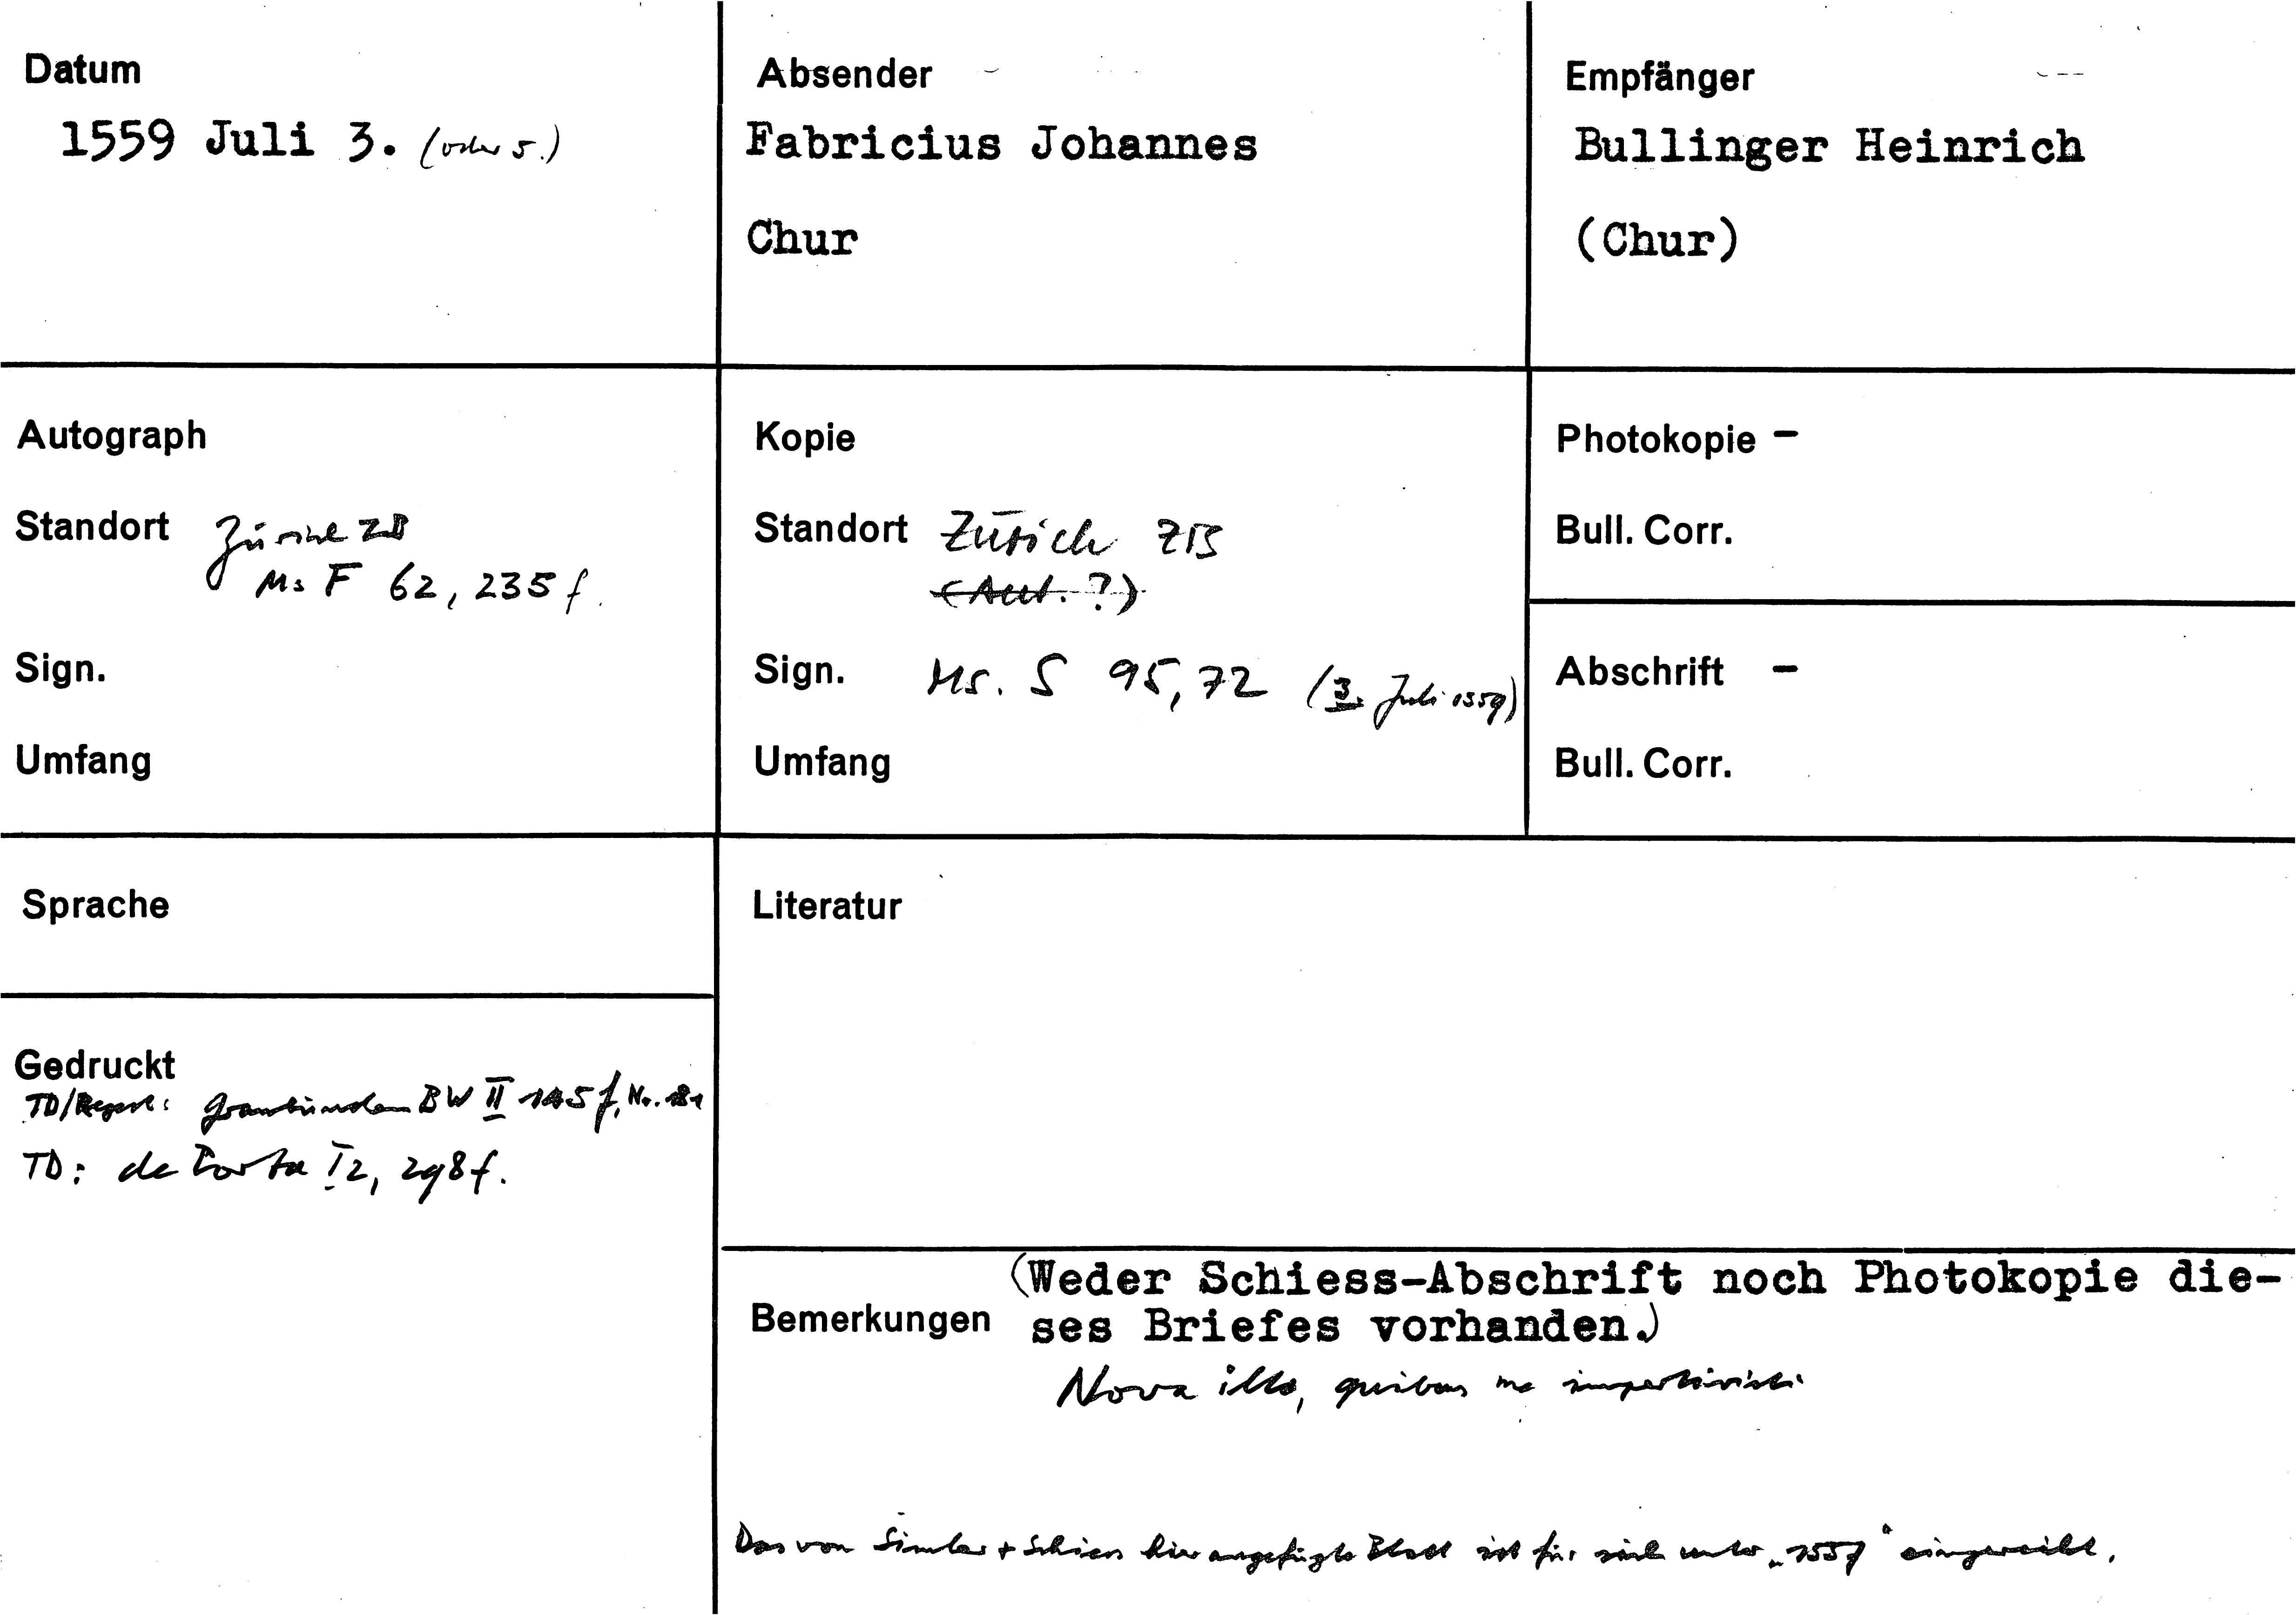 Datum
1559 Juli 3. (oder 5.)
Absender
Fabricius Johannes
Chur
Empfänger
Bullinger Heinrich
(Chur)
Autograph
Standort Zürich ZB
Ms F 62, 235 f.
Sign.
Umfang
Kopie
Standort Zürich ZB
(Aut. ?)
Sign. Ms. S 95,72 (3. Juli 1559)
Umfang
Photokopie –
Bull. Corr.
Abschrift –
Bull. Corr.
Sprache
Gedruckt
TD/Regest: Graubünden BW II 145 f, Nr. 181
TD: de Porta I 2, 298 f.
Literatur
Bemerkungen (Weder Schiess-Abschrift noch Photokopie die-
ses Briefes vorhanden.)
Nova illa, quibus me impertivisti
Das von Simler + Schiess hier angefügte Blatt ist für sich unter „1559" eingereiht.